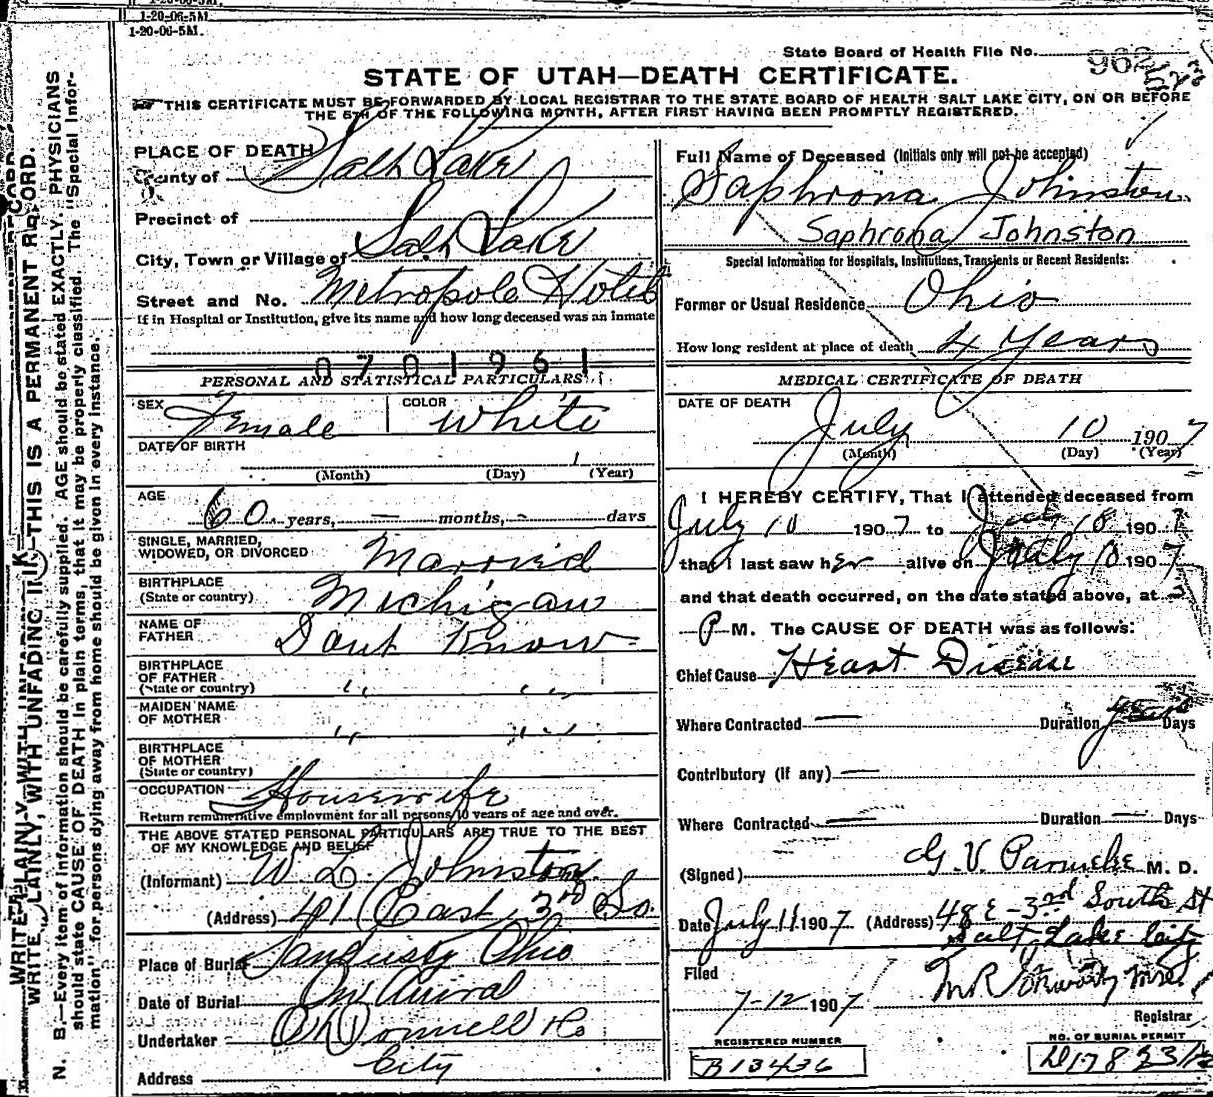 1-20-06-5M.
1-20-06-5M.
State Board of Health File No. 962
STATE OF UTAH—DEATH CERTIFICATE.
THIS CERTIFICATE MUST BE FORWARDED BY LOCAL REGISTRAR TO THE STATE BOARD OF HEALTH SALT LAKE CITY, ON OR BEFORE
THE 5TH OF THE FOLLOWING MONTH, AFTER FIRST HAVING BEEN PROMPTLY REGISTERED.
PLACE OF DEATH
County of Salt Lake
Precinct of
City, Town or Village of Salt Lake
Street and No. Metropole Hotel
If in Hospital or Institution, give its name and how long deceased was an inmate
0701961
PERSONAL AND STATISTICAL PARTICULARS
SEX Female COLOR White
DATE OF BIRTH
(Month) (Day) 1 (Year)
AGE
60 years, — months, - days
SINGLE, MARRIED,
WIDOWED, OR DIVORCED Married
BIRTHPLACE
(State or country) Michigan
NAME OF
FATHER Dont Know
BIRTHPLACE
OF FATHER
(State or country) " "
MAIDEN NAME
OF MOTHER " "
BIRTHPLACE
OF MOTHER
(State or country)
OCCUPATION Housewife
Return remunerative employment for all persons 10 years of age and over.
THE ABOVE STATED PERSONAL PARTICULARS ARE TRUE TO THE BEST
OF MY KNOWLEDGE AND BELIEF
(Informant) W. L. Johnston
(Address) 41 East 3rd So.
Place of Burial Sandusty Ohio
Date of Burial On Arival
Undertaker O'Donnell Co
City
Address
Full Name of Deceased (Initials only will not be accepted)
Saphrona Johnston
Saphrona Johnston
Special Information for Hospitals, Institutions, Transients or Recent Residents:
Former or Usual Residence Ohio
How long resident at place of death 4 Years
MEDICAL CERTIFICATE OF DEATH
DATE OF DEATH
July 10 1907
(Month) (Day) (Year)
I HEREBY CERTIFY, That I attended deceased from
July 10 1907 to July 10 1907
that I last saw her alive on July 10 1907
and that death occurred, on the date stated above, at
P M. The CAUSE OF DEATH was as follows:
Chief Cause Heart Disease
Where Contracted — Duration years Days
Contributory (if any) —
Where Contracted — Duration — Days
(Signed) G. V. Parmele M. D.
Date July 11 1907 (Address) 48 E - 3rd South St
Salt Lake City
Filed
7-12 1907
Registrar
REGISTERED NUMBER
B13436
NO. OF BURIAL PERMIT
D17823
WRITE PLAINLY, WITH UNFADING INK—THIS IS A PERMANENT RECORD.
N. B.—Every item of information should be carefully supplied. AGE should be stated EXACTLY. PHYSICIANS
should state CAUSE OF DEATH in plain terms, that it may be properly classified. The "Special Infor-
mation" for persons dying away from home should be given in every instance.